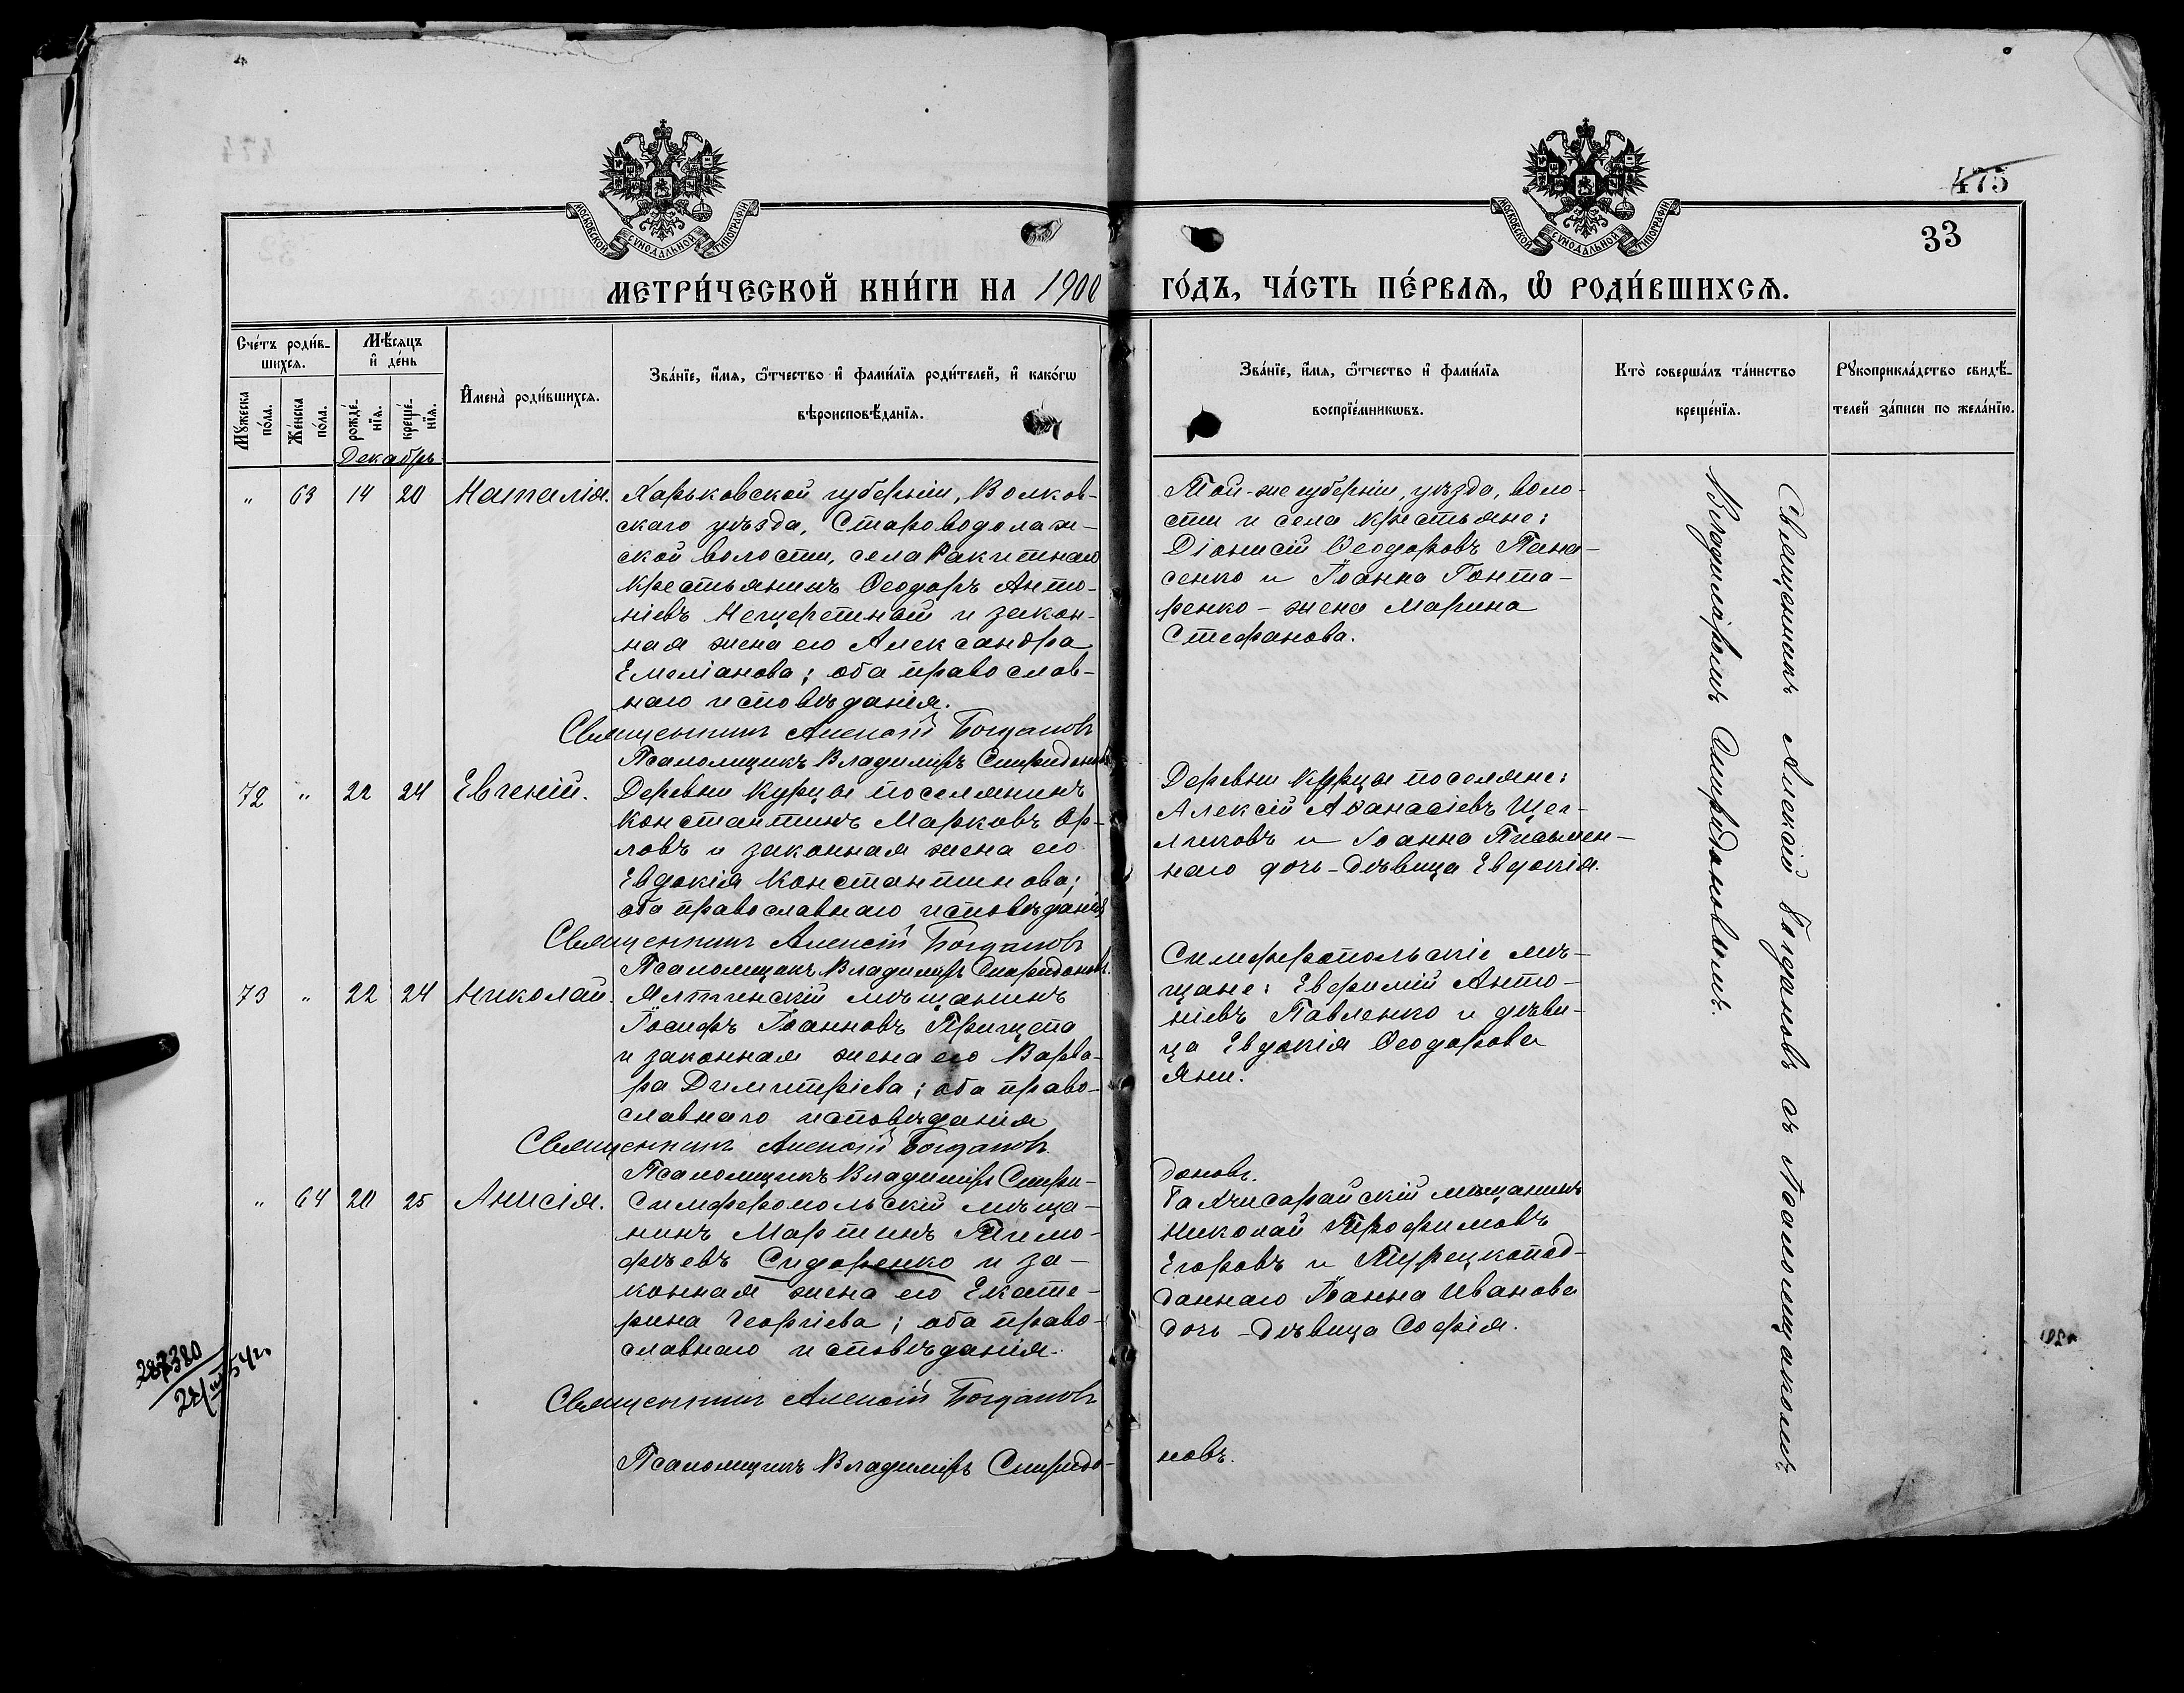 475
33
МОСКОВСКОЙ СѴНОДАЛЬНОЙ ТИПОГРАФІИ
МОСКОВСКОЙ СѴНОДАЛЬНОЙ ТИПОГРАФІИ
МЕТРИ́ЧЕСКОЙ КНИ́ГИ НА 1900
ГО́ДЪ, ЧА́СТЬ ПЕ́РВАѦ, Ѡ РОДИ́ВШИХСѦ.
Сче́тъ роди́в-
шихсѧ.
Мꙋжеска по́ла.
Же́нска по́ла.
Мѣ́сяцъ
и҆ де́нь
рожде́-
нїѧ.
креще́-
нїѧ.
И҆мена̀ роди́вшихсѧ.
Зва́нїе, и҆́мѧ, ѻ҆́тчество и҆ фами́лїѧ роди́телей, и҆ како́гѡ
вѣроисповѣ́данїѧ.
Зва́нїе, и҆́мѧ, ѻ҆́тчество и҆ фами́лїѧ
воспрїе́мникѡвъ.
Кто̀ соверша́лъ та́инство
креще́нїѧ.
Рꙋкоприкла́дство свидѣ́-
телей за́писи по жела́нїю.
Декабрь
" 63 14 20 Наталія.
Харьковской губерніи, Волков-
скаго уѣзда, Староводолаж-
ской волости, села Ракитнаго
крестьянинъ Ѳеодоръ Анто-
ніевъ Нещеретный и закон-
ная жена его Александра
Емеліанова; оба православ-
наго исповѣданія.
Священникъ Алексій Богдановъ
Псаломщикъ Владиміръ Спиридоновъ
Той-же губерніи, уѣзда, воло-
сти и села крестьяне:
Діонисій Ѳеодоровъ Пана-
сенко и Іоанна Гонта-
ренко - жена Марина
Стефанова.
72 " 22 24 Евгеній.
Деревни Курцы поселянинъ
Константинъ Марковъ Ор-
ловъ и законная жена его
Евдокія Константинова;
оба православнаго исповѣданія
Священникъ Алексій Богдановъ
Псаломщикъ Владиміръ Спиридоновъ.
Деревни Курцы поселяне:
Алексій Аѳанасіевъ Щег-
ликовъ и Іоанна Письмен-
наго дочь-дѣвица Евдокія.
73 " 22 24 Николай.
Ялтинскій мѣщанинъ
Іосифъ Іоанновъ Прищепа
и законная жена его Варва-
ра Димитріева; оба право-
славнаго исповѣданія
Священникъ Алексій Богдановъ.
Псаломщикъ Владиміръ Спири-
доновъ.
Симферопольскіе мѣ-
щане: Евфимій Анто-
ніевъ Павленко и дѣви-
ца Евдокія Ѳеодорова
Яни.
" 64 20 25 Анисія.
Симферопольскій мѣща-
нинъ Мартинъ Тимо-
фѣевъ Сидоренко и за-
конная жена его Екате-
рина Георгіева; оба право-
славнаго исповѣданія.
Священникъ Алексій Богдановъ
Псаломщикъ Владиміръ Спиридо-
новъ.
Бахчисарайскій мѣщанинъ
Николай Трофимовъ
Егоровъ и Турецкопод-
даннаго Іоанна Иванова
дочь-дѣвица Софія.
Священникъ Алексій Богдановъ съ псаломщикомъ
Владиміромъ Спиридоновымъ.